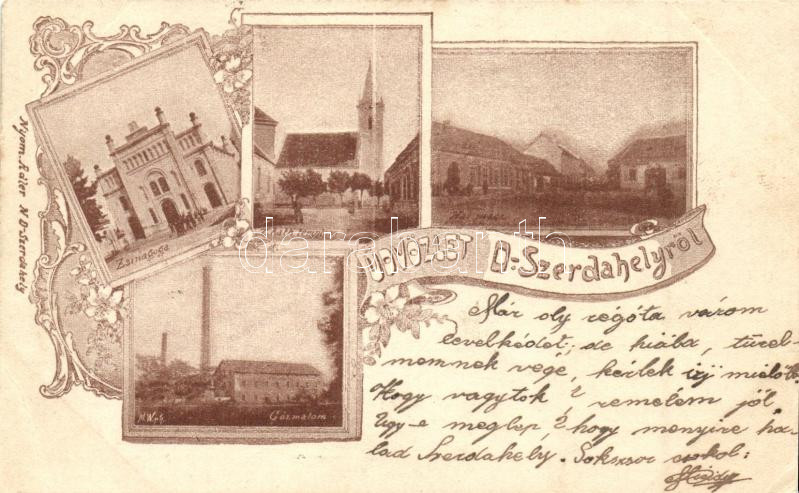 Nyom. Adler N D-Szerdahely
Zsinagoga
ÜDVÖZLET D-Szerdahelyről
darabanth
M.W.
Gőzmalom
Már oly régóta várom
levelkédet, de hiába, türel-
memnek vége, kérlek irj mielőbb
Hogy vagytok? remélem jól
Ugy-e meglep? hogy menyire ha-
lad Szerdahely. Sokszor csokol: